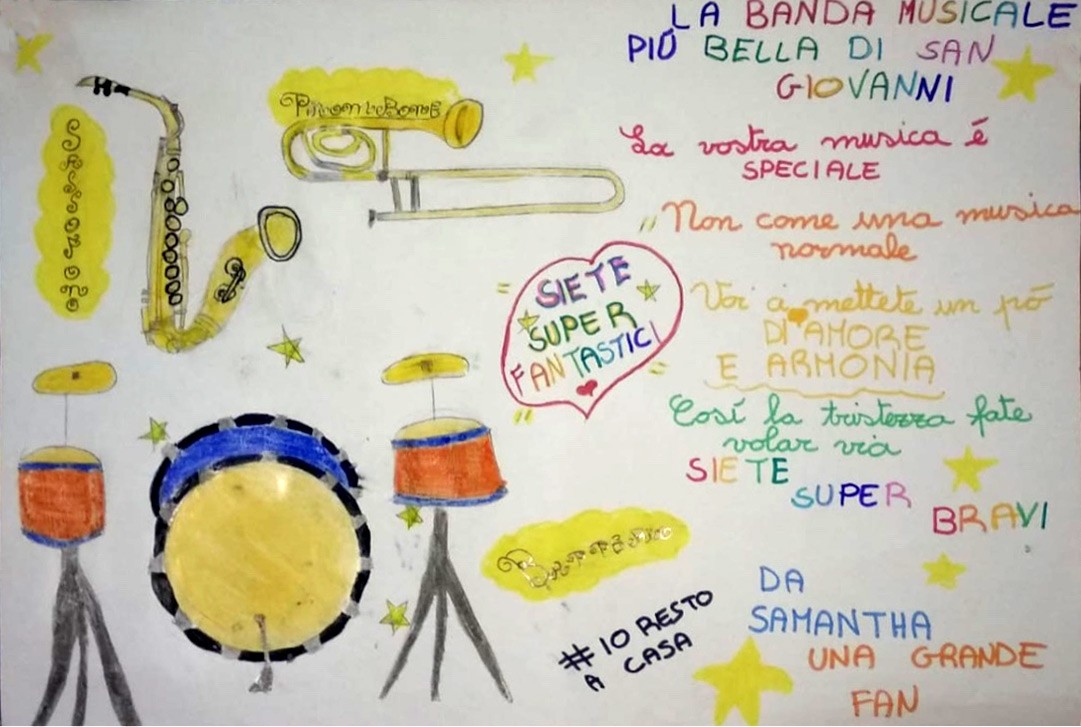 LA BANDA MUSICALE
PIÚ BELLA DI SAN
GIOVANNI
La vostra musica é
SPECIALE
"Non come una musica
normale
Voi ci mettete un pó
DI AMORE
E ARMONIA
Cosí la tristezza fate
volar via
SIETE
SUPER
BRAVI
DA
SAMANTHA
UNA GRANDE
FAN
"SIETE
SUPER
FANTASTICI"
Sassofono
Batteria
#IO RESTO
A CASA